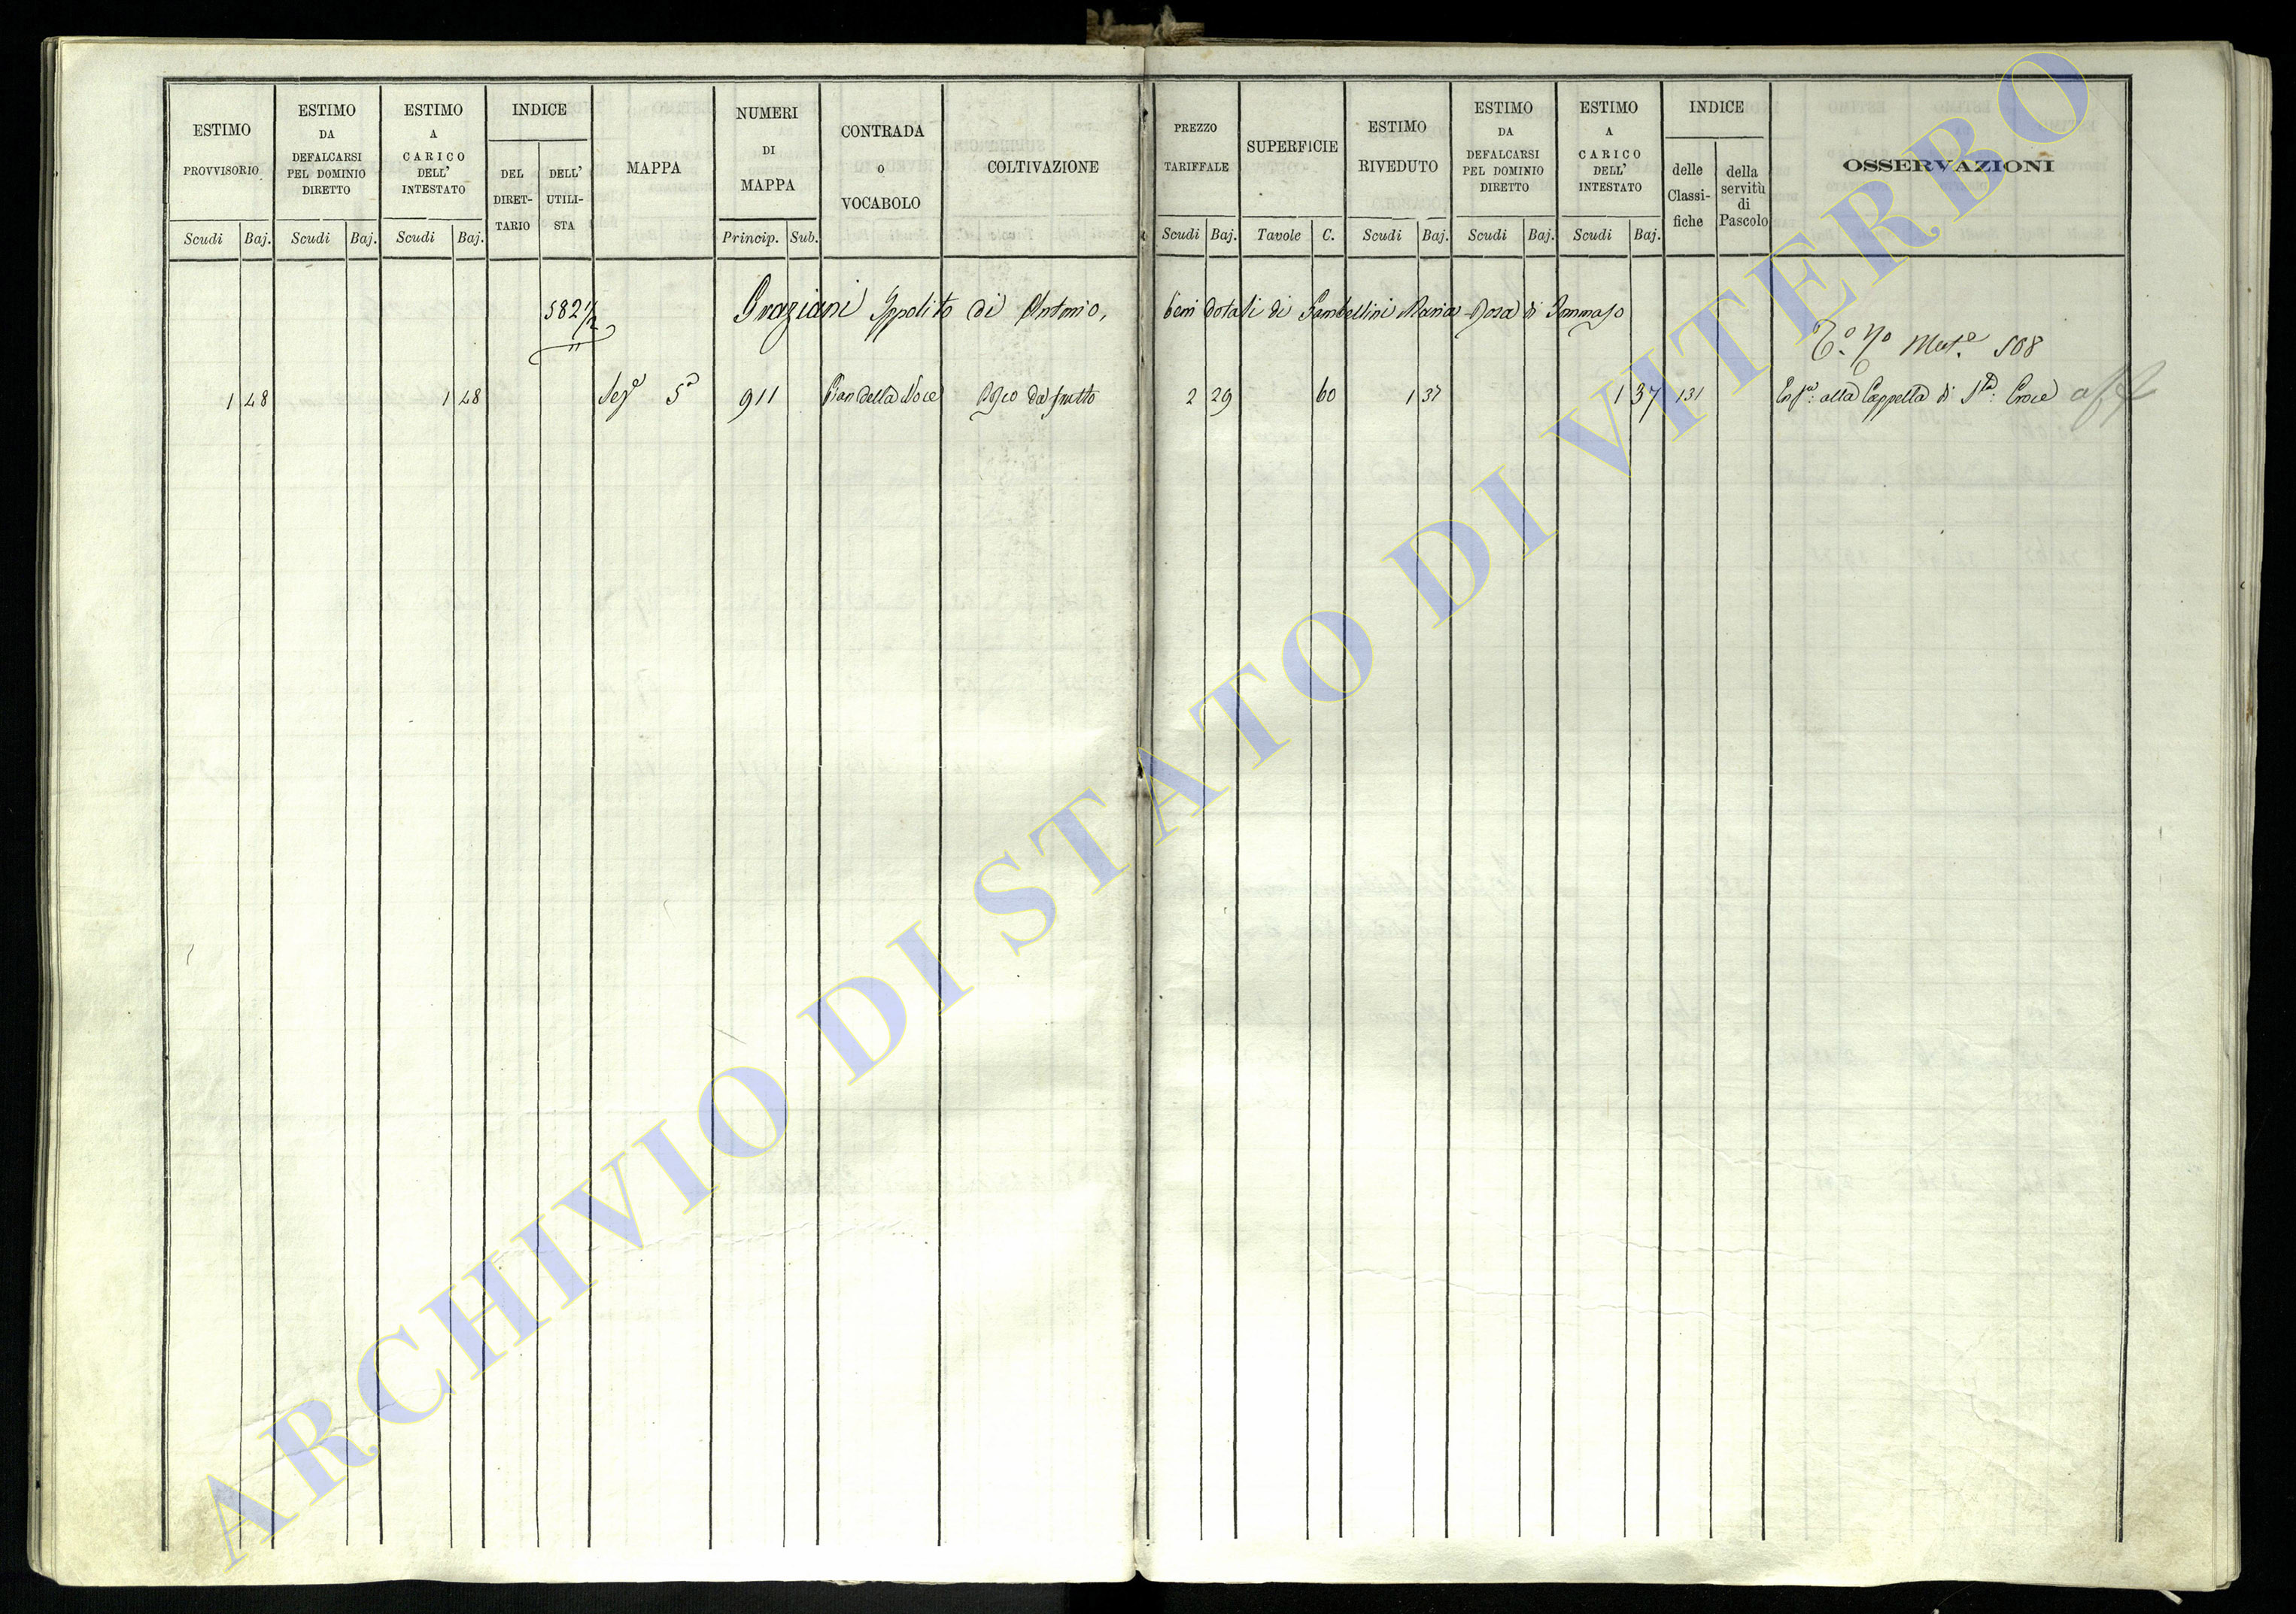 ESTIMO PROVVISORIO
Scudi Baj.
ESTIMO DA DEFALCARSI PEL DOMINIO DIRETTO
Scudi Baj.
ESTIMO A CARICO DELL' INTESTATO
Scudi Baj.
INDICE
DEL DIRET-
TARIO
DELL' UTILI-
STA
MAPPA
NUMERI DI MAPPA
Princip. Sub.
CONTRADA o VOCABOLO
COLTIVAZIONE
PREZZO TARIFFALE
Scudi Baj.
SUPERFICIE
Tavole C.
ESTIMO RIVEDUTO
Scudi Baj.
ESTIMO DA DEFALCARSI PEL DOMINIO DIRETTO
Scudi Baj.
ESTIMO A CARICO DELL' INTESTATO
Scudi Baj.
INDICE
delle Classi-
fiche
della servitù di Pascolo
OSSERVAZIONI
582 1/2 Graziani Ippolito di Antonio, beni dotali di Maria Rosa di Tommaso
508
1 48 1 48 Sez.e 5a 911 Pian della Noce da frutto 2 29 60 1 37 1 37 131 alla Cappella di S.ta Croce
ARCHIVIO DI STATO DI VITERBO